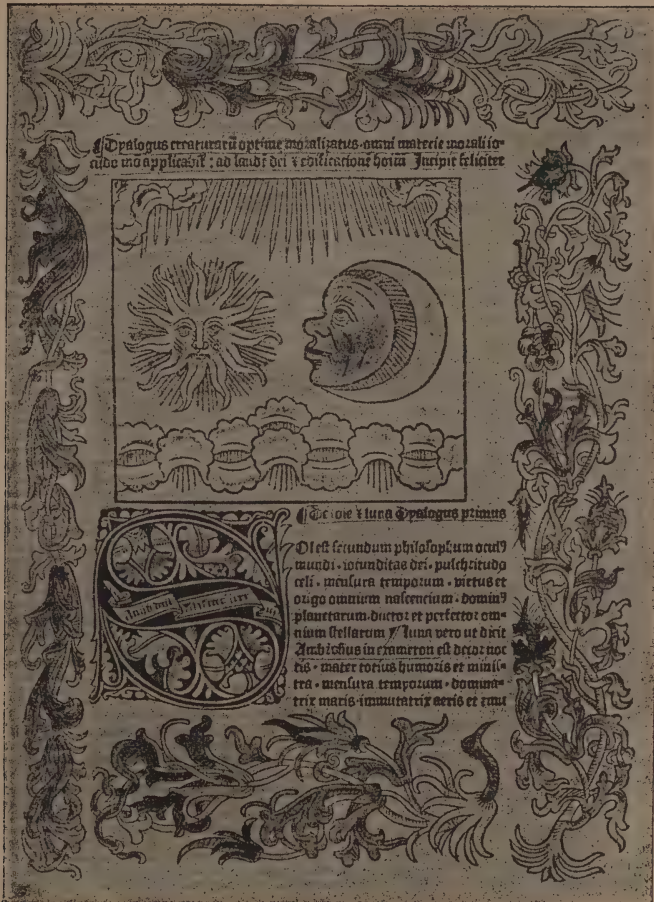 ¶Dyalogus creaturarũ optime moralizatus. omni materie morali io-
cũdo mõ applicabil': ad laudẽ dei ⁊ edificationẽ hoim̃ Incipit feliciter
¶De sole ⁊ luna Dyalogus primus
SOl est secundum philosophum ocul9
mundi. iocunditas dei. pulchritudo
celi. mensura temporum. virtus et
origo omnium nascencium. domin9
planetarum. ductor et perfector om-
nium stellarum luna vero ut dicit
Ambrosius in exameron est decor noc
tis. mater totius humoris et minis-
tra. mensura temporum. domina-
trix maris. immutatrix aeris et emu